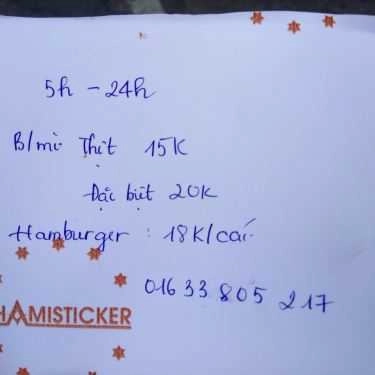 5h - 24h
B/mì Thịt 15K
Đặc biệt 20K
Hamburger : 18K/cái
01633 805 217
HAMISTICKER